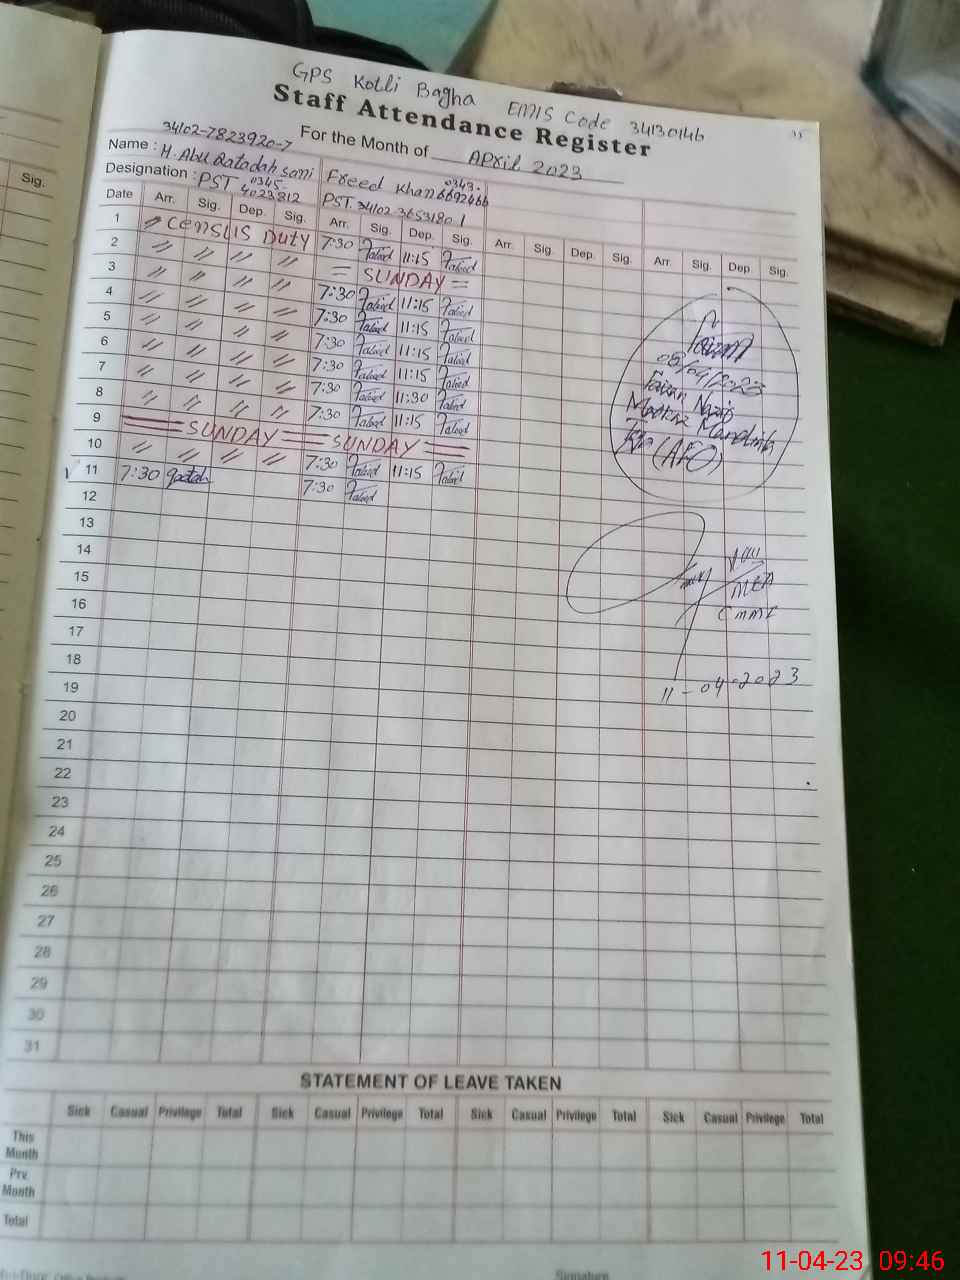 GPS Kotli Bagha EMIS Code 34130146
Staff Attendance Register
For the Month of April 2023
34102-7823920-7
Name : H. Abu Qatadah sami Freed Khan 0343. 6692466
Designation : PST 0345- 4023812 PST. 34102-3653180.1
Sig.
Date Arr. Sig. Dep. Sig. Arr. Sig. Dep. Sig. Arr. Sig. Dep. Sig. Arr. Sig. Dep. Sig.
1 〃 Census Duty 7:30 Fareed 11:15 Fareed
2 〃 〃 〃 〃 = SUNDAY =
3 〃 〃 〃 〃 7:30 Fareed 11:15 Fareed
4 〃 〃 〃 〃 7:30 Fareed 11:15 Fareed
5 〃 〃 〃 〃 7:30 Fareed 11:15 Fareed
6 〃 〃 〃 〃 7:30 Fareed 11:15 Fareed
7 〃 〃 〃 〃 7:30 Fareed 11:30 Fareed
8 〃 〃 〃 〃 7:30 Fareed 11:15 Fareed
9 SUNDAY SUNDAY
10 〃 〃 〃 〃 7:30 Fareed 11:15 Fareed
11 7:30 Qatadah 7:30 Fareed
12
13
14
15
16
17
18
19
20
21
22
23
24
25
26
27
28
29
30
31
08/04/2023
Faizan Nazir
Markaz
(AEO)
MEA
11-04-2023
STATEMENT OF LEAVE TAKEN
Sick Casual Privilege Total Sick Casual Privilege Total Sick Casual Privilege Total Sick Casual Privilege Total
This Month
Prv. Month
Total
Signature
11-04-23 09:46